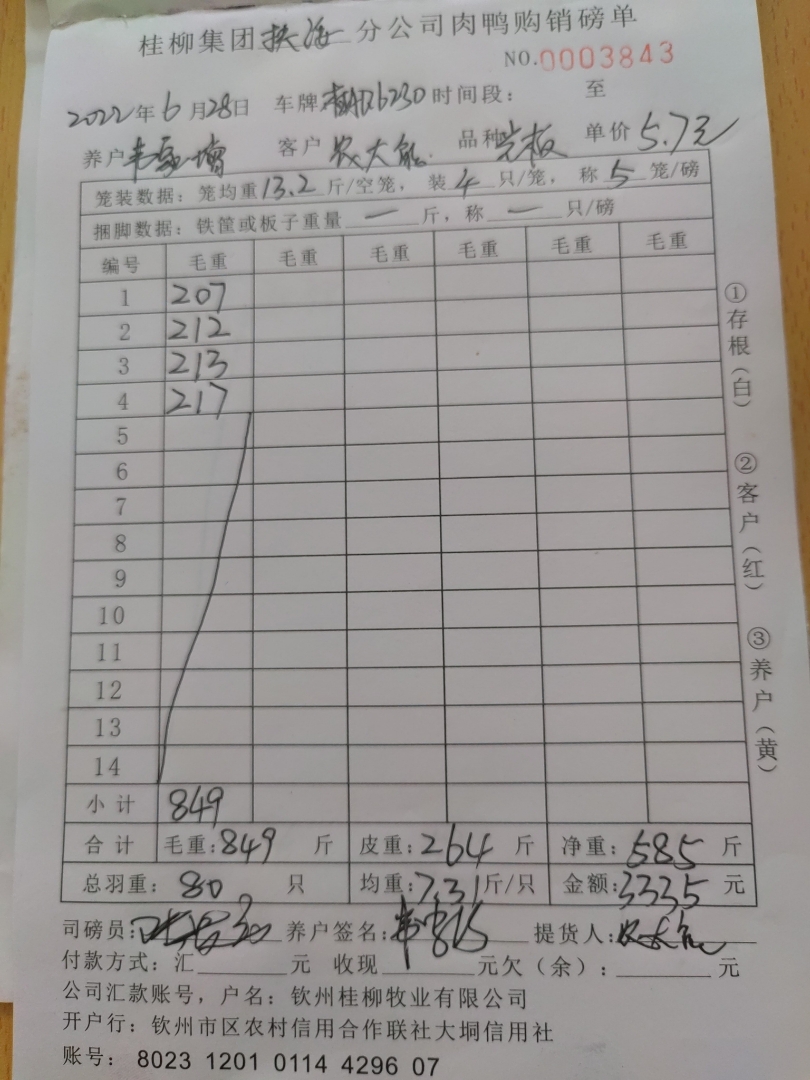 桂柳集团扶海分公司肉鸭购销磅单
NO.0003843
2022年6月28日 车牌 6230 时间段: 至
养户 客户 农大 品种 单价5.7元
笼装数据:笼均重13.2斤/空笼, 装4只/笼, 称5笼/磅
捆脚数据:铁筐或板子重量一斤,称一只/磅
编号 毛重 毛重 毛重 毛重 毛重 毛重
1 207
2 212
3 213
4 217
5
6
7
8
9
10
11
12
13
14
小计 849
合计 毛重:849斤 皮重:264斤 净重:585斤
总羽重:80只 均重:7.31斤/只 金额:3335元
司磅员: 养户签名: 提货人:农大
付款方式:汇 元 收现 元欠(余): 元
公司汇款账号,户名:钦州桂柳牧业有限公司
开户行:钦州市区农村信用合作联社大垌信用社
账号: 8023 1201 0114 4296 07
①存根(白)
②客户(红)
③养户(黄)